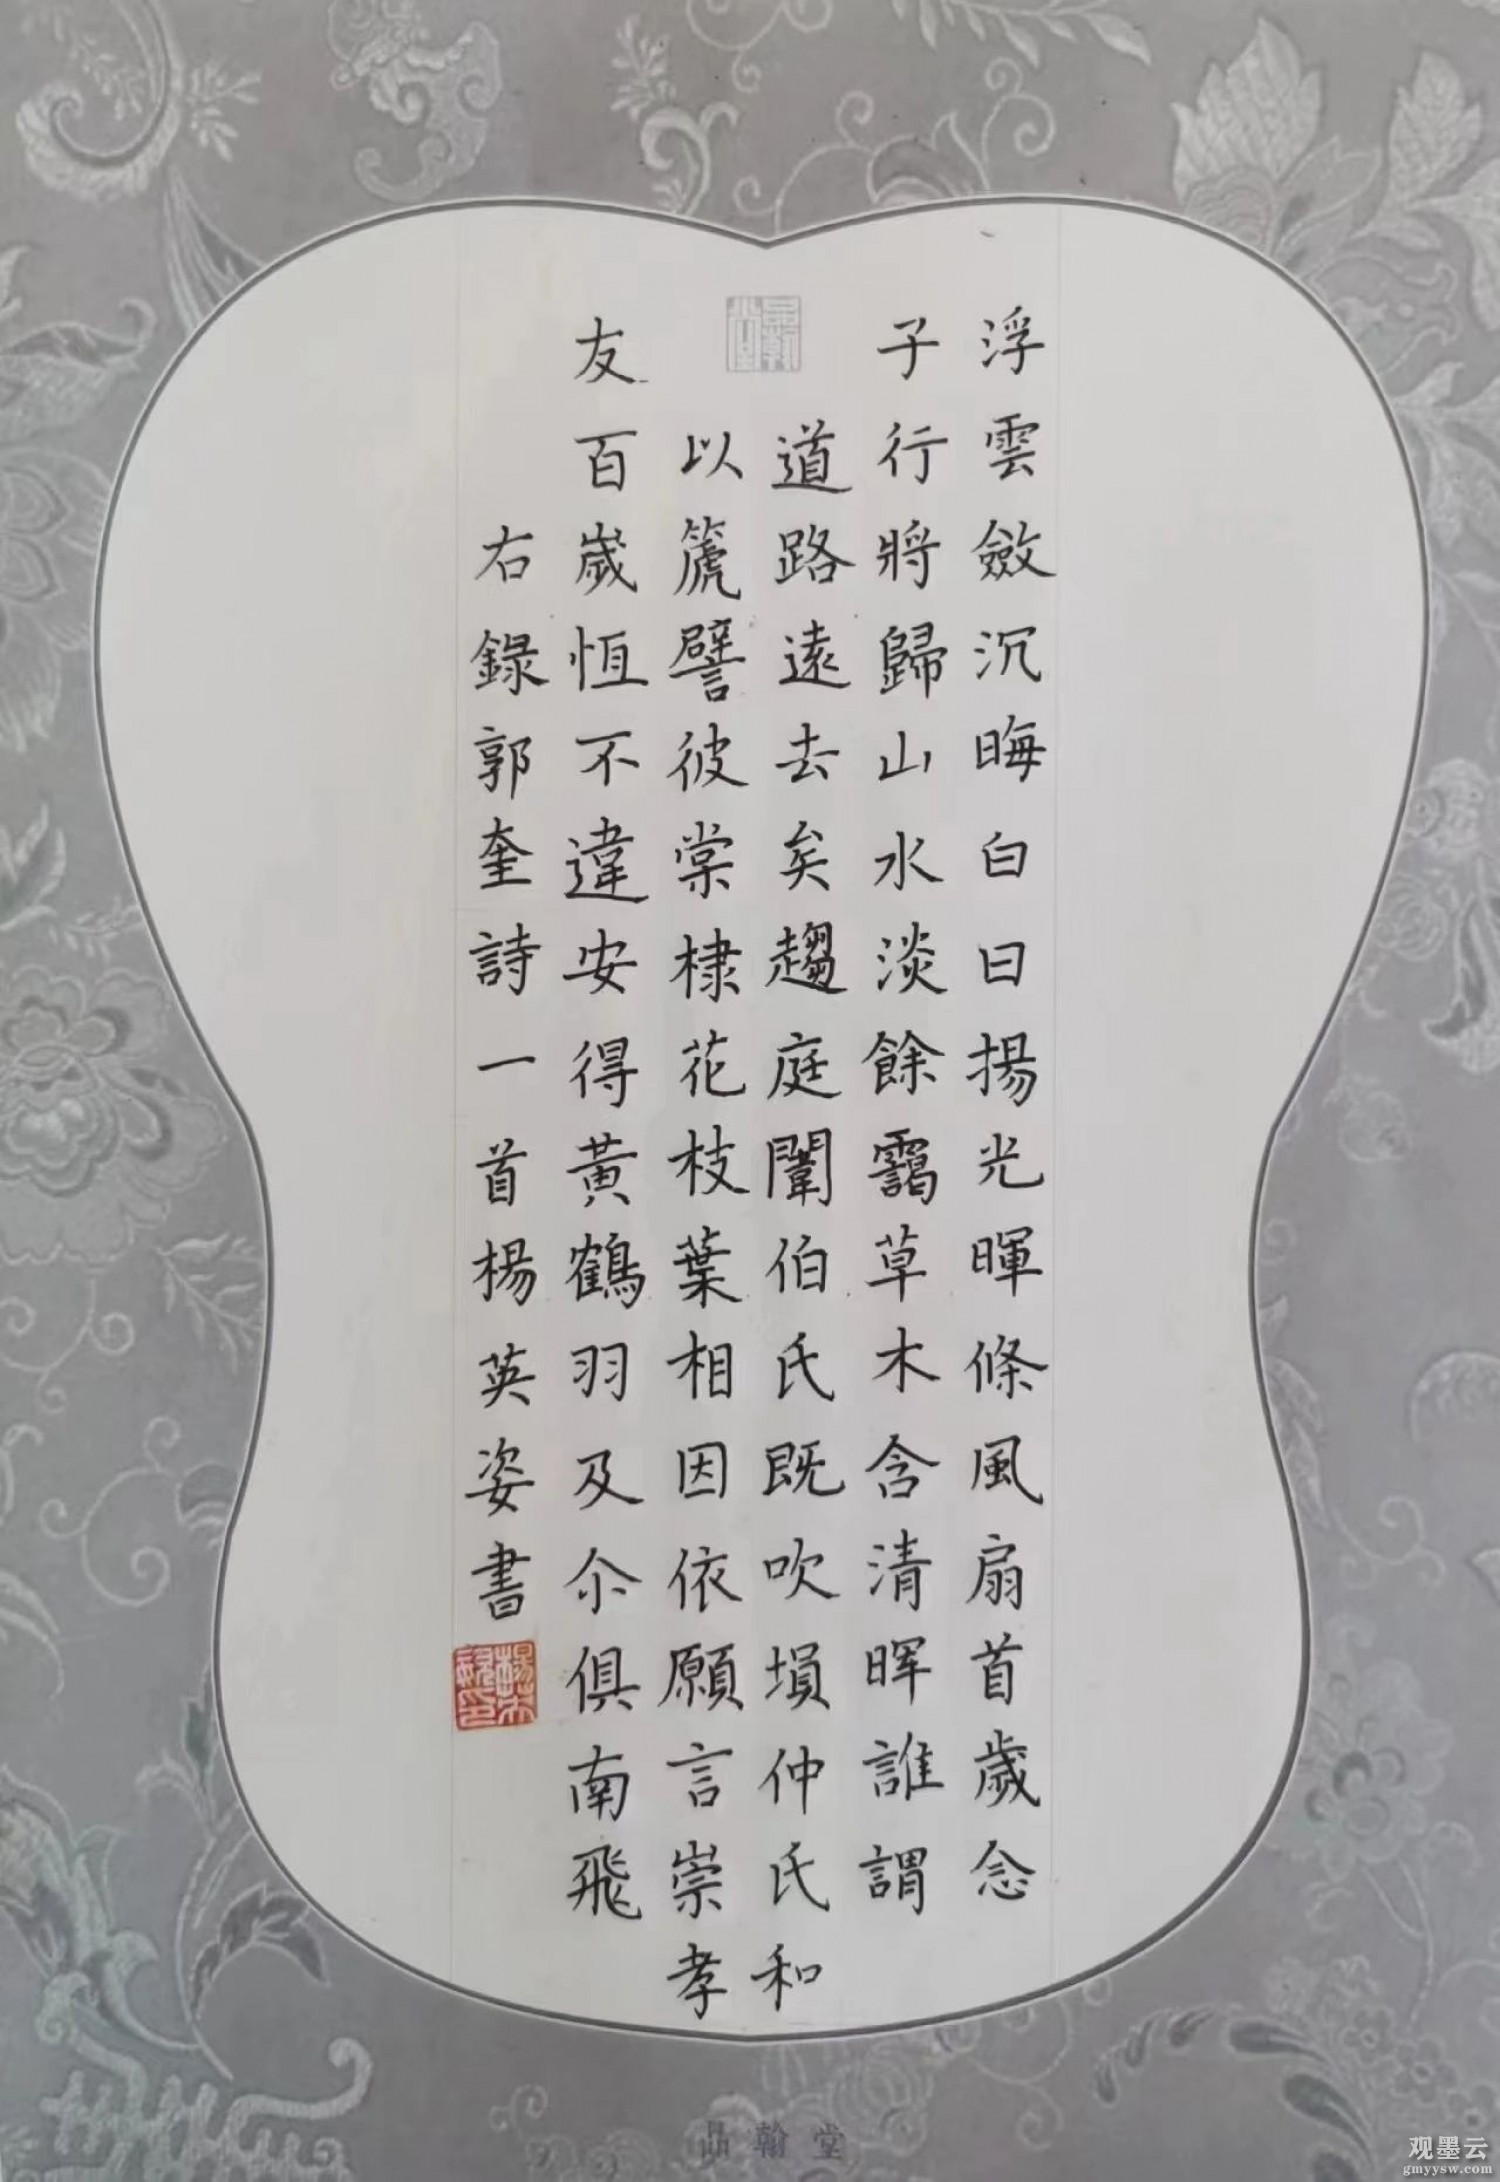 浮雲斂沉晦白日揚光暉條風扇首歲念
子行將歸山水淡餘靄草木含清晖誰謂
道路遠去矣趨庭闈伯氏既吹塤仲氏和
以篪譬彼棠棣花枝葉相因依願言崇孝
友百歲恆不違安得黃鶴羽及尒俱南飛
右錄郭奎詩一首楊英姿書
品翰堂
品翰堂
观墨云
gmyysw.com